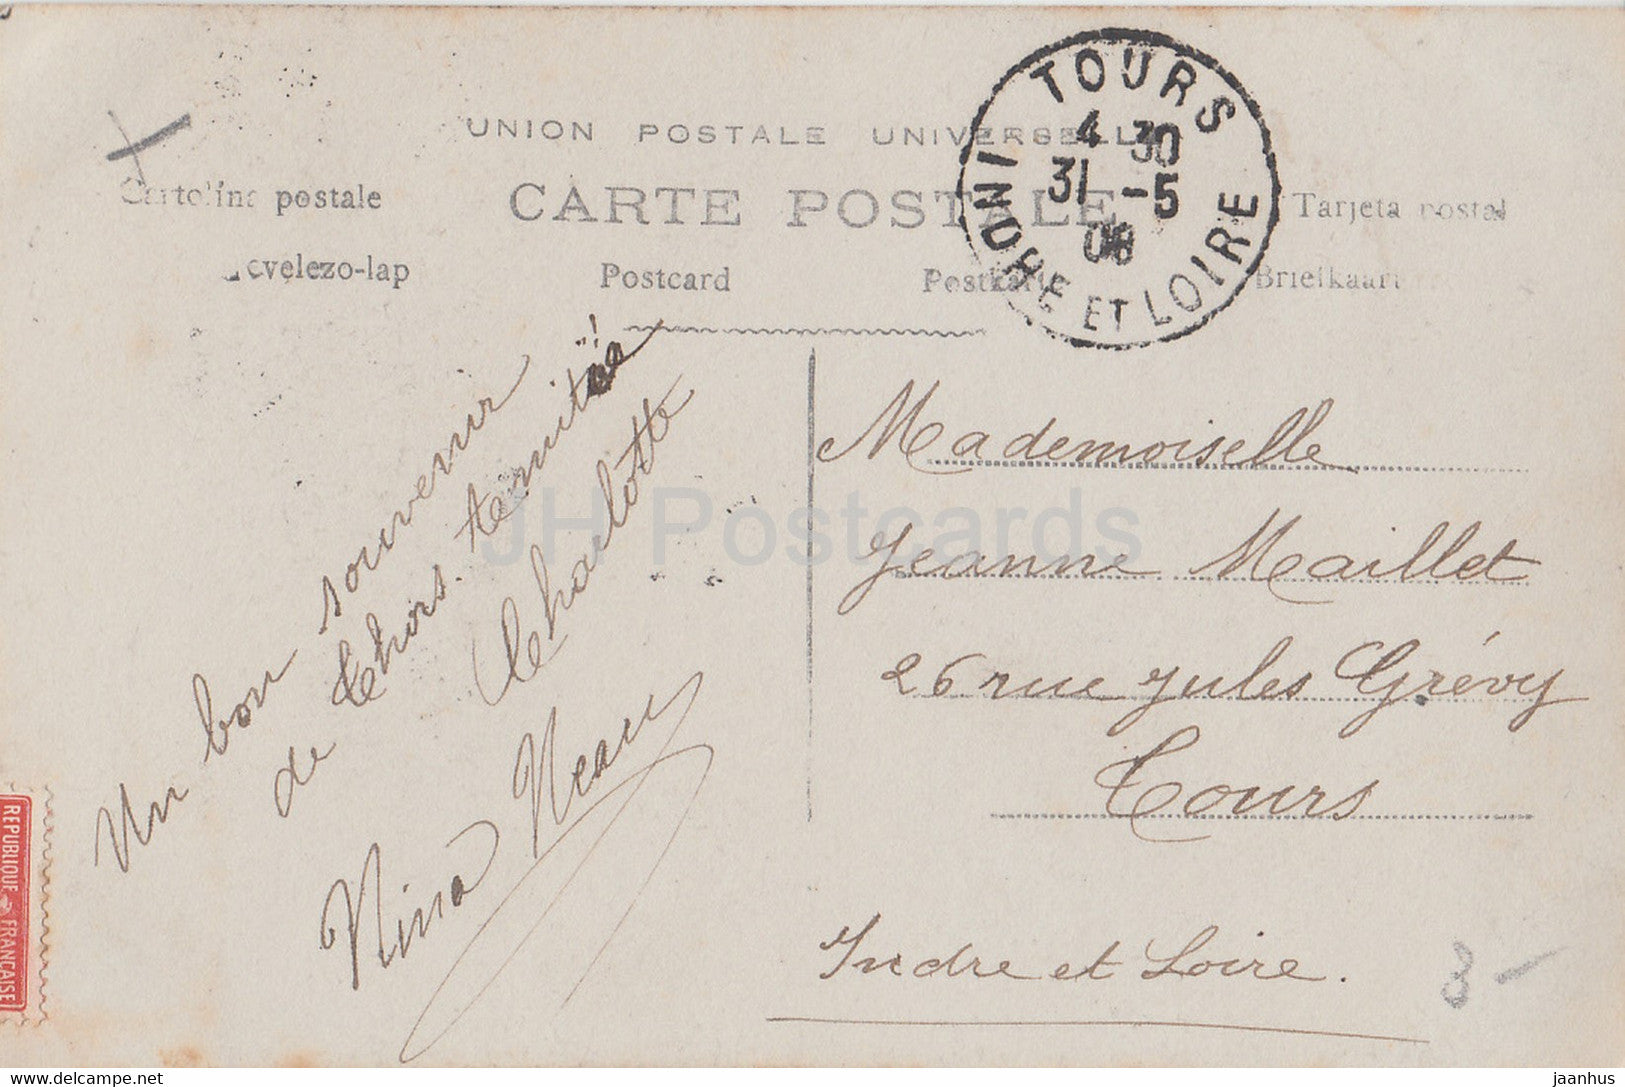 UNION POSTALE UNIVERSELLE
Cartolina postale
CARTE POSTALE
Tarjeta postal
Levelezo-lap
Postcard
Postkarte
Briefkaart
TOURS
4 30
31 -5
08
INDRE ET LOIRE
Un bon souvenir
de
Charlotte
Nina
Mademoiselle
Jeanne Maillet
26 rue Jules Grévy
Tours
Indre et Loire.
3 -
REPUBLIQUE FRANÇAISE
JH Postcards
delcampe.net
jaanhus